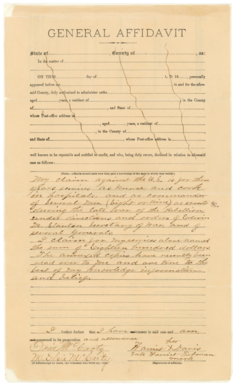 GENERAL AFFIDAVIT
State of County of SS:
In the matter of
ON THIS day of A. D. 18 , personally
appeared before me in and for the afore-
said County, duly authorized to administer oaths,
aged years, a resident of in the County
of and State of
whose Post-office address is
aged years, a resident of
in the County of
and State of whose Post-office address is
well known to be reputable and entitled to credit, and who, being duly sworn, declared in relation to aforesaid
case as follows:
My claim against the U.S. is for three
years service as nurse and cook
in hospitals, and as commander
of several men (eight or nine) as scouts
during the late War of the Rebellion
under directions and orders of Edwin
M. Stanton Secretary of War, and of
several Generals.
I claim for my services above named
the sum of Eighteen hundred dollars
The annexed copies have recently been
read over to me and are true to the
best of my knowledge information
and belief.
I further declare that I have interest in said case and am
concerned in its prosecution and allowance
Harriet Davis